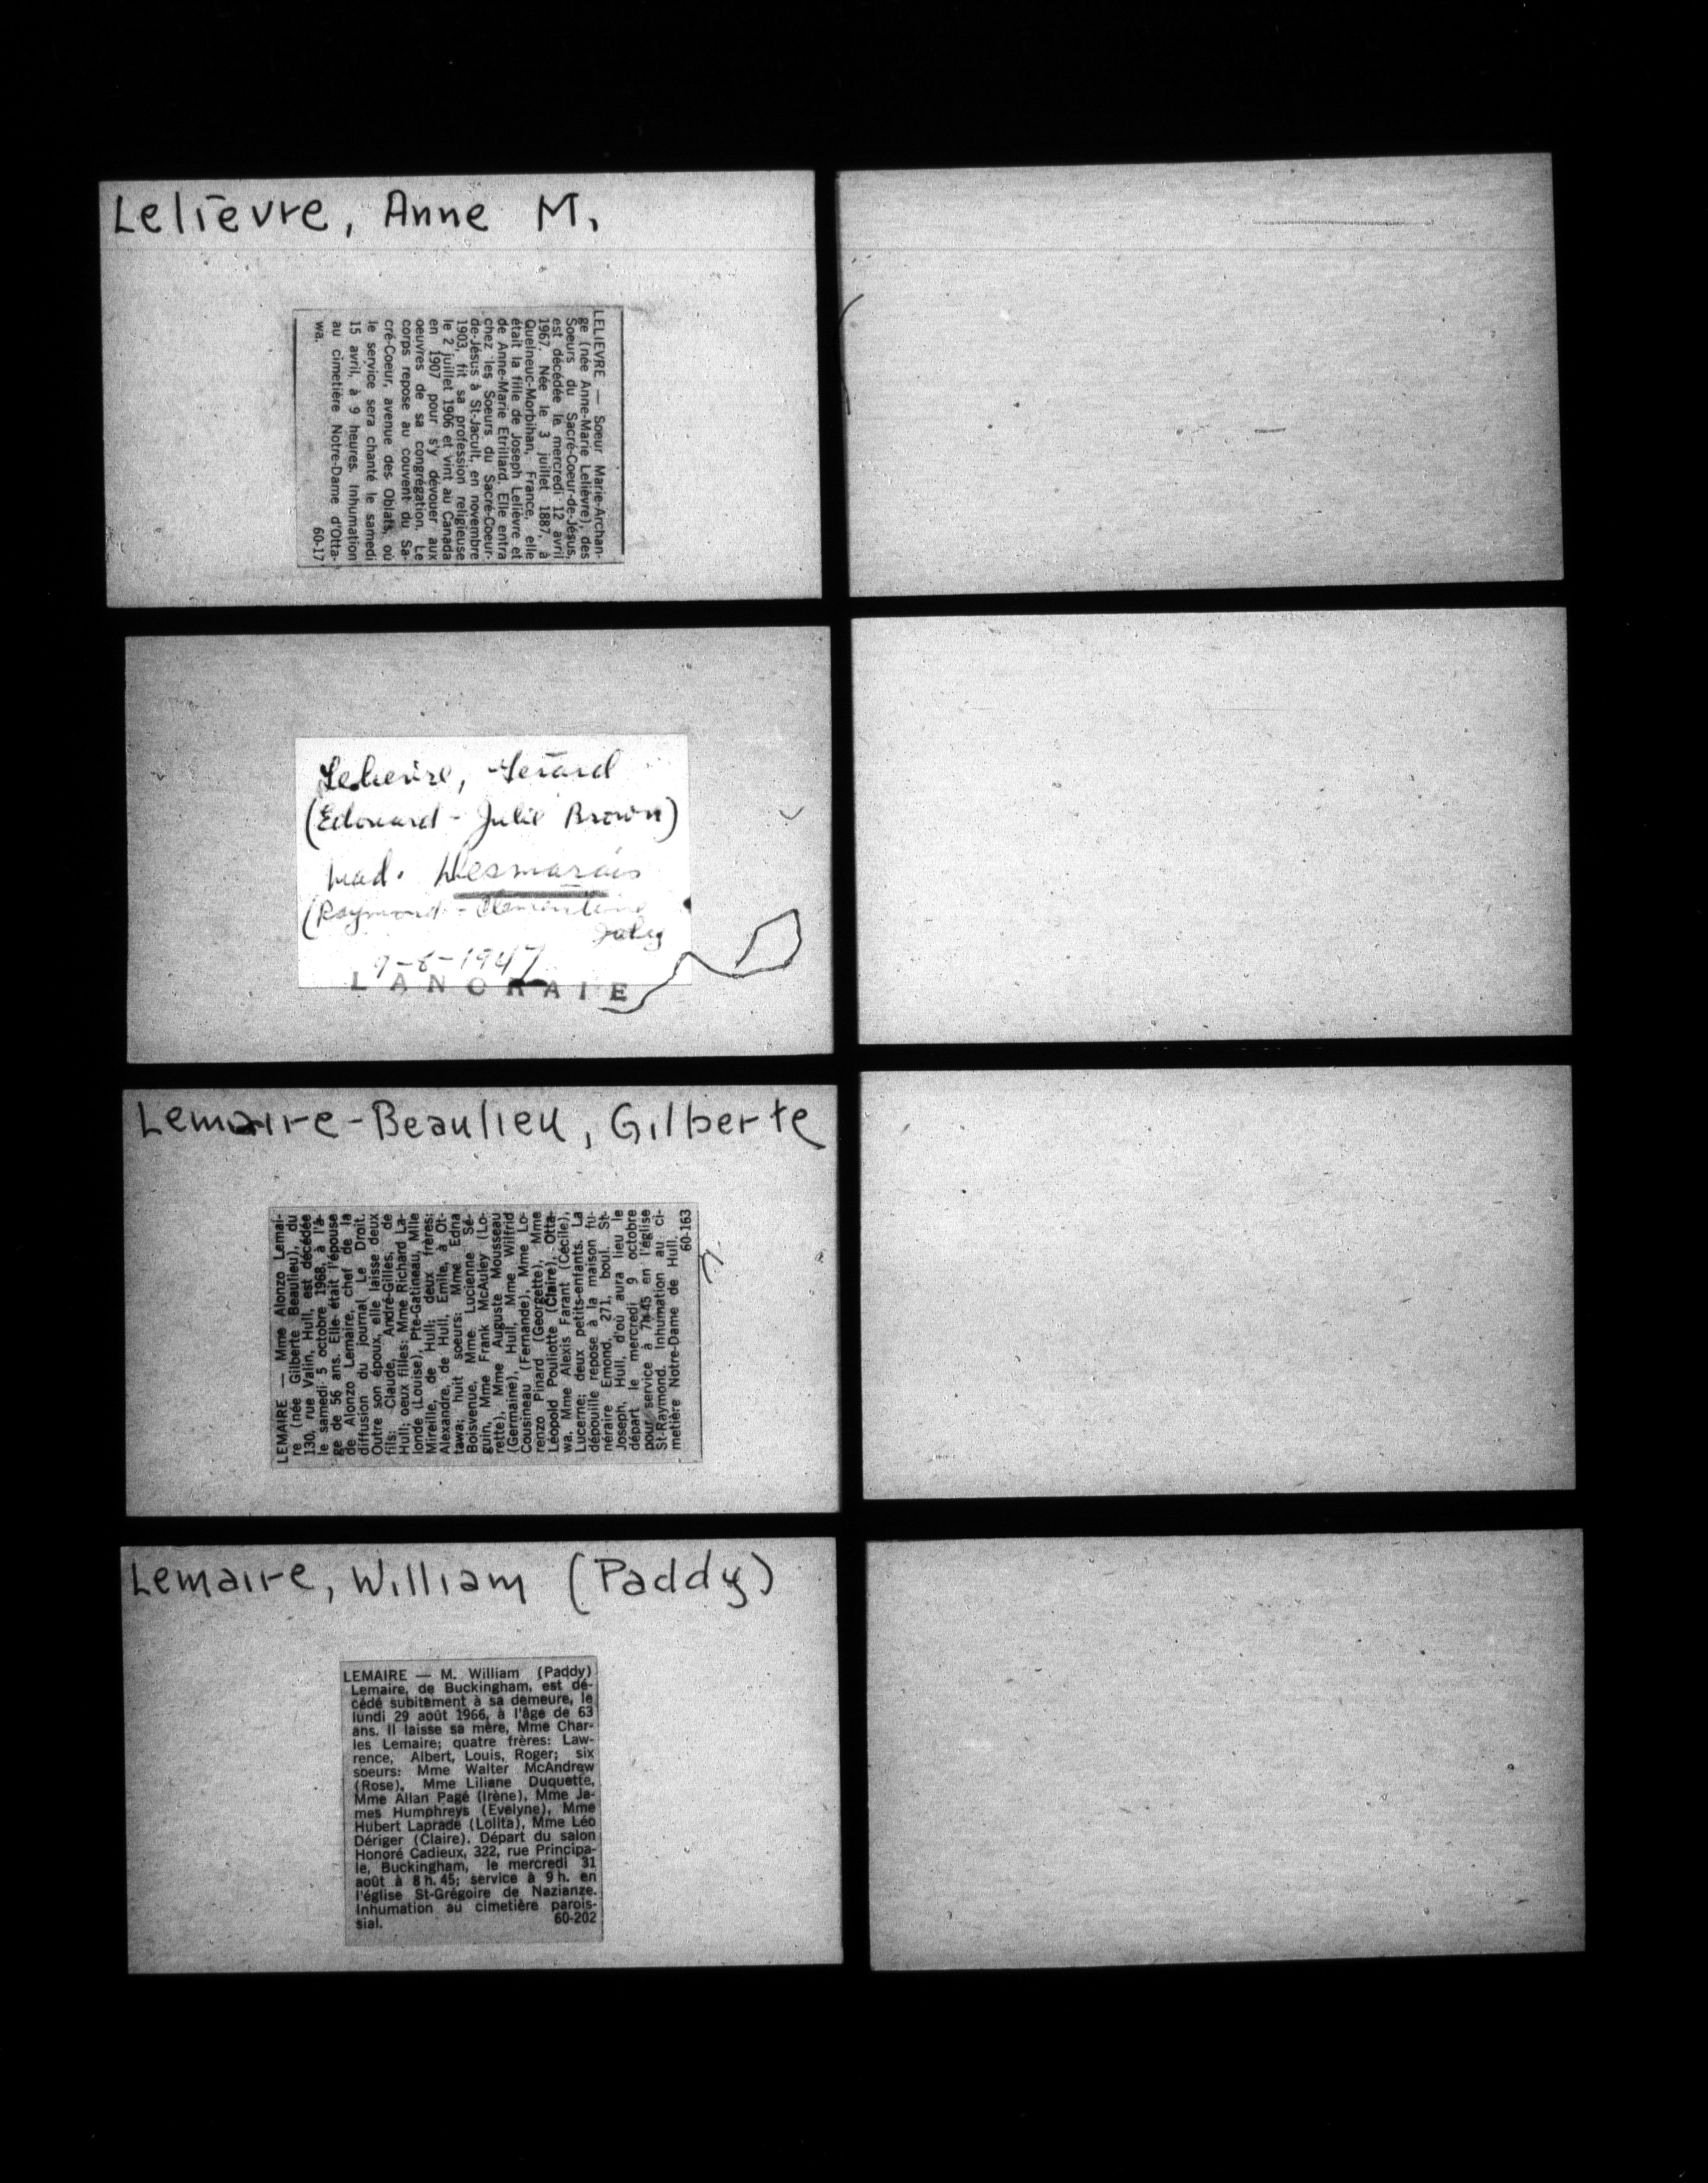 Lelièvre, Anne M.
LELIEVRE — Soeur Marie-Archan-
ge (née Anne-Marie Lelièvre), des
Soeurs du Sacré-Coeur-de-Jésus,
est décédée le mercredi 12 avril
1967. Née le 3 juillet 1887, à
Quelneuc-Morbihan, France, elle
était la fille de Joseph Lelièvre et
de Anne-Marie Etrillard. Elle entra
chez les Soeurs du Sacré-Coeur-
de-Jésus à St-Jacult, en novembre
1903, fit sa profession religieuse
le 2 juillet 1906 et vint au Canada
en 1907 pour s'y dévouer aux
oeuvres de sa congrégation. Le
corps repose au couvent du Sa-
cré-Coeur, avenue des Oblats, où
le service sera chanté le samedi
15 avril, à 9 heures. Inhumation
au cimetière Notre-Dame d'Otta-
wa. 60-17
Gérard
(Edouard - Julie Brown)
Desmarais
(Raymond - Clementine
1947
LANORAIE
Lemaire-Beaulieu, Gilberte
LEMAIRE — Mme Alonzo Lemai-
re (née Gilberte Beaulieu), du
130, rue Valin, Hull, est décédée
le samedi 5 octobre 1968, à l'â-
ge de 56 ans. Elle était l'épouse
de Alonzo Lemaire, chef de la
diffusion du journal Le Droit.
Outre son époux, elle laisse deux
fils: Claude, André-Gilles, de
Hull; deux filles: Mme Richard La-
londe (Louise), Pte-Gatineau, Mlle
Mireille, de Hull; deux frères:
Alexandre, de Hull, Emile, à Ot-
tawa; huit soeurs: Mme Edna
Boisvenue, Mme Lucienne Sé-
guin, Mme Frank McAuley (Lo-
rette), Mme Auguste Mousseau
(Germaine), Hull, Mme Wilfrid
Cousineau (Fernande), Mme Lo-
renzo Pinard (Georgette), Mme
Léopold Pouliotte (Claire), Otta-
wa, Mme Alexis Farant (Cécile),
Lucerne; deux petits-enfants. La
dépouille repose à la maison fu-
néraire Emond, 271, boul. St-
Joseph, Hull, d'où aura lieu le
départ le mercredi 9 octobre
pour service à 7h45 en l'église
St-Raymond. Inhumation au ci-
metière Notre-Dame de Hull.
60-163
Lemaire, William (Paddy)
LEMAIRE — M. William (Paddy)
Lemaire, de Buckingham, est dé-
cédé subitement à sa demeure, le
lundi 29 août 1966, à l'âge de 63
ans. Il laisse sa mère, Mme Char-
les Lemaire; quatre frères: Law-
rence, Albert, Louis, Roger; six
soeurs: Mme Walter McAndrew
(Rose), Mme Liliane Duquette,
Mme Allan Pagé (Irène), Mme Ja-
mes Humphreys (Evelyne), Mme
Hubert Laprade (Lolita), Mme Léo
Dériger (Claire). Départ du salon
Honoré Cadieux, 322, rue Principa-
le, Buckingham, le mercredi 31
août à 8 h. 45; service à 9 h. en
l'église St-Grégoire de Nazianze.
Inhumation au cimetière parois-
sial. 60-202